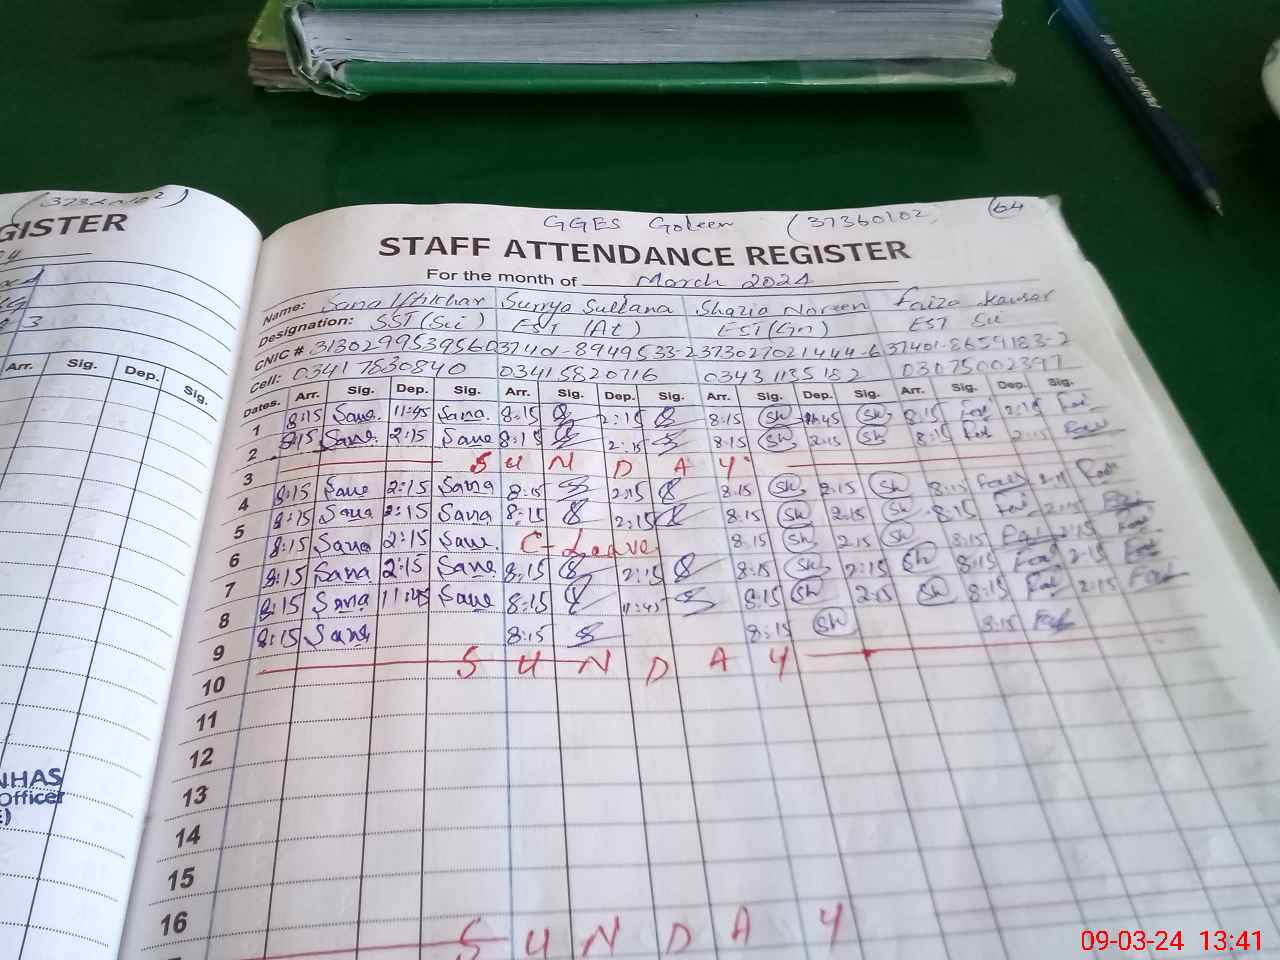 PIANO CRYSTAL
(37360102)
GISTER
Arr. Sig. Dep. Sig.
NHAS
Officer
E)
GGES Goleen (37360102) 64
STAFF ATTENDANCE REGISTER
For the month of March 2024
Name: Sana Iftikhar Surrya Sultana Shazia Noreen Faiza Kausar
Designation: SST (Sci) EST (At) EST (Gn) EST Sci
CNIC # 3130299539560 37401-8949533-2 373027021444-6 37401-8659183-2
Cell: 03417830840 03415820716 03431135182 03075002397
Dates. Arr. Sig. Dep. Sig. Arr. Sig. Dep. Sig. Arr. Sig. Dep. Sig. Arr. Sig. Dep. Sig.
1 8:15 Sana 11:45 Sana 8:15 2:15 8:15 Sh Sh 8:15 2:15
2 8:15 Sana 2:15 Sana 8:15 2:15 8:15 Sh 2:15 Sh 8:15 2:15
3 SUNDAY
4 8:15 Sana 2:15 Sana 8:15 2:15 8:15 Sh 2:15 Sh 8:15
5 8:15 Sana 2:15 Sana 8:15 2:15 8:15 Sh 2:15 Sh 8:15 2:15
6 8:15 Sana 2:15 Sana C-Leave 8:15 Sh 2:15 Sh 8:15 2:15
7 8:15 Sana 2:15 Sana 8:15 2:15 8:15 Sh 2:15 Sh 8:15 2:15
8 8:15 Sana 11:45 Sana 8:15 11:45 8:15 Sh 2:15 Sh 8:15 2:15
9 8:15 Sana 8:15 8:15 Sh 8:15
10 SUNDAY
11
12
13
14
15
16
SUNDAY
09-03-24 13:41